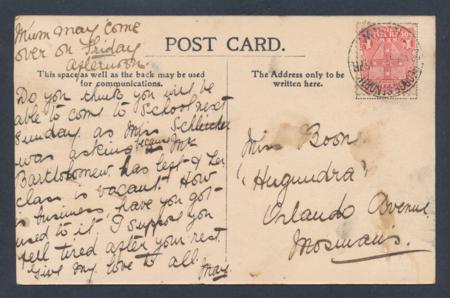 Mum may come
over on Friday
afternoon
POST CARD.
This space as well as the back may be used
for communications.
The Address only to be
written here.
Do you think you will be
able to come to School next
Sunday as Miss
was asking because Mr
Bartholomew has left & her
class is vacant. How
is business have you got
used to it. I suppose you
feel tired after your rest.
Give my love to all.
May.
Miss Boon
"Hugundra"
Orlando Avenue
Mosman's.